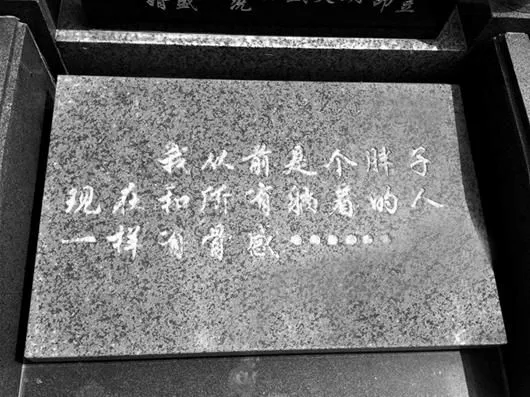 我从前是个胖子
现在和所有躺着的人
一样有骨感••••••